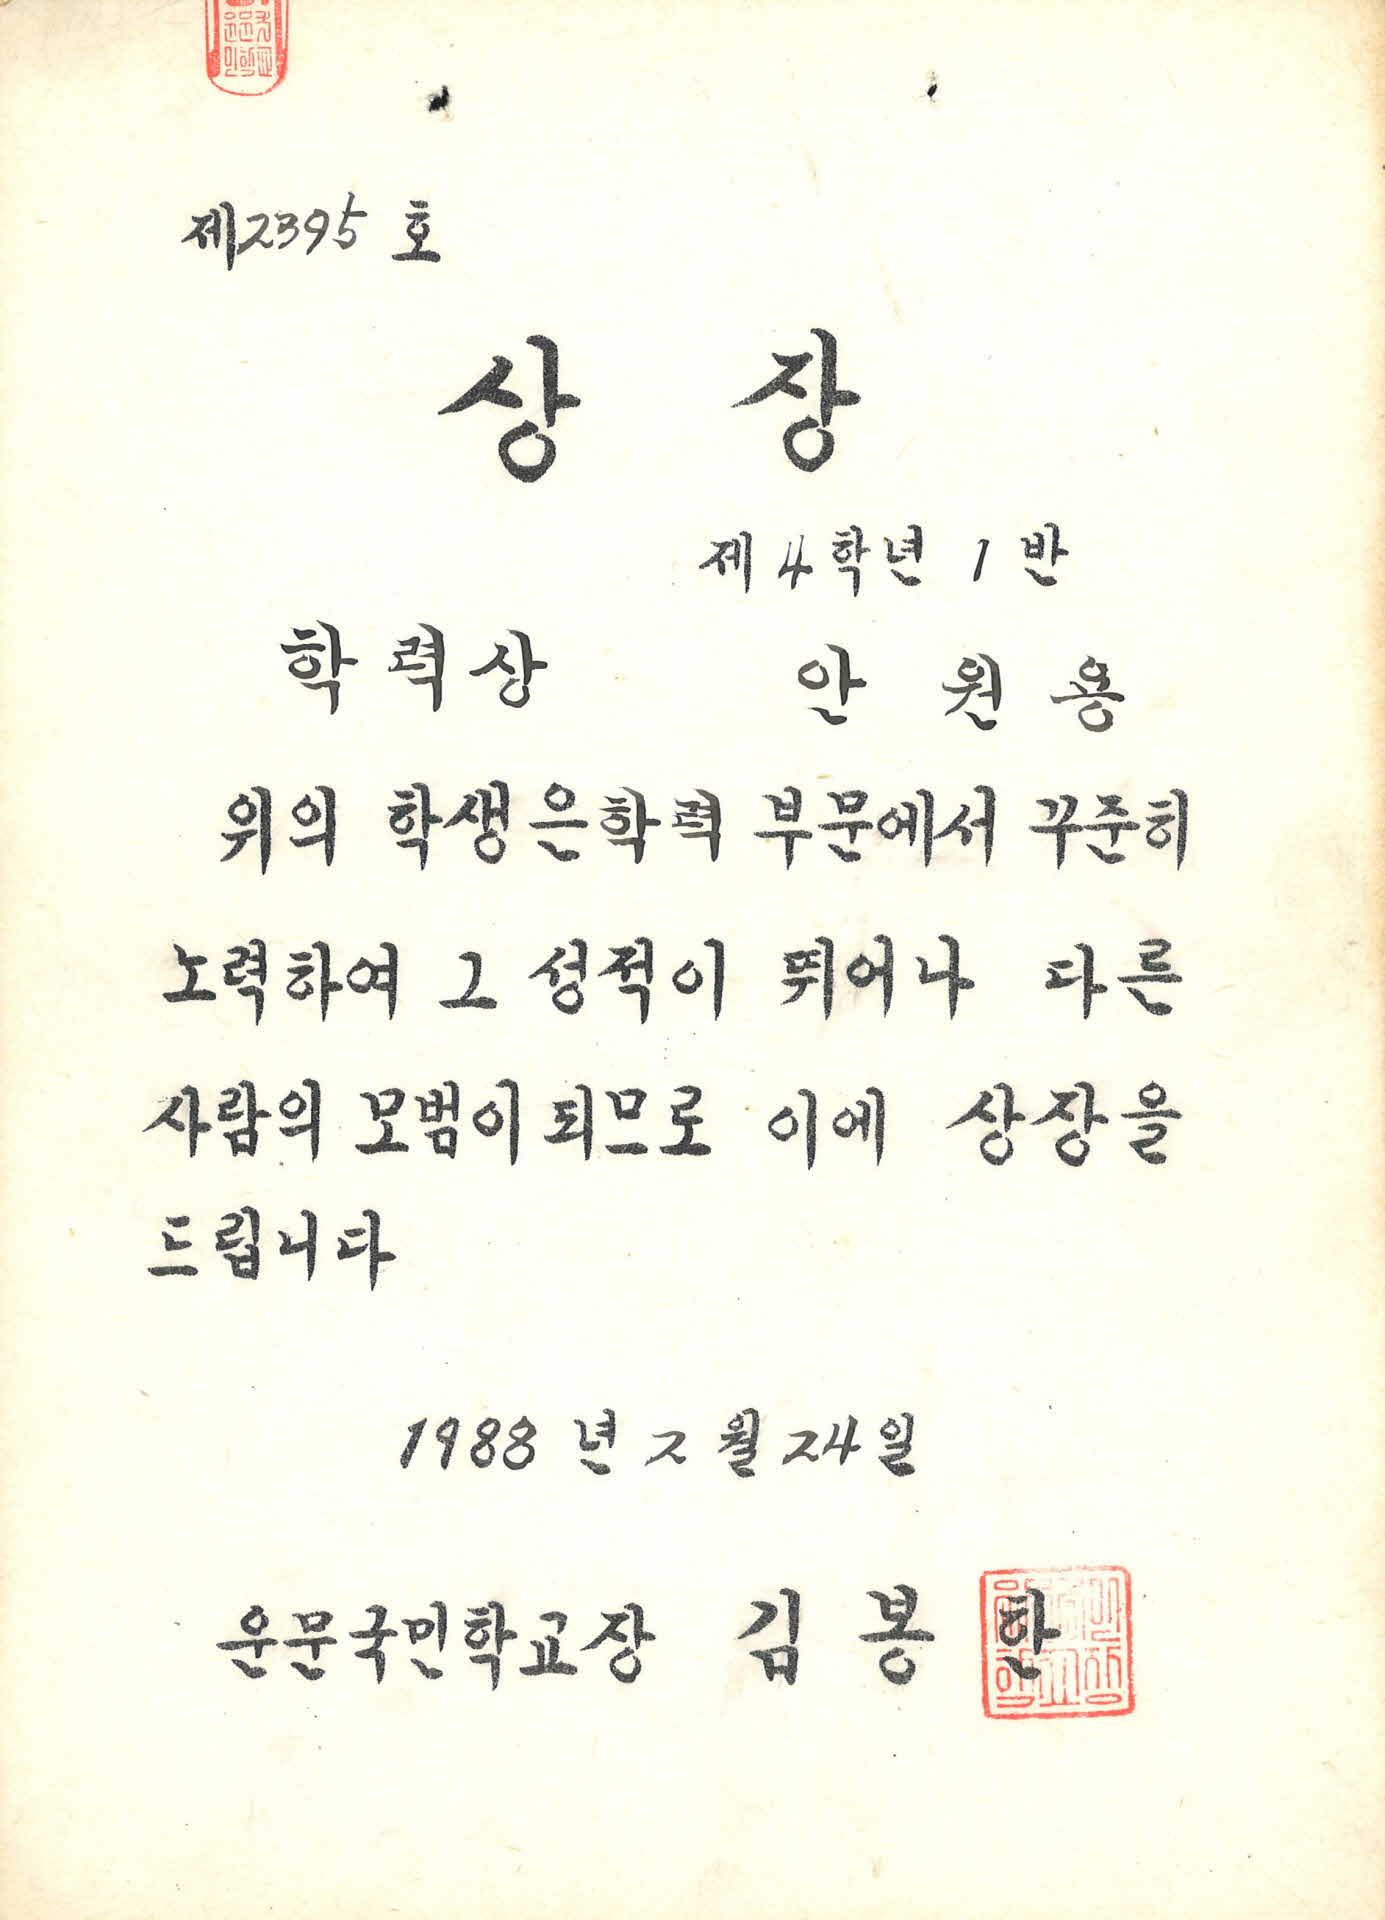 제2395호
상 장
제4학년 1반
학력상 안원용
위의 학생은학력 부문에서 꾸준히
노력하여 그 성적이 뛰어나 다른
사람의 모범이 되므로 이에 상장을
드립니다
1988년 2월 24일
운문국민학교장 김봉한